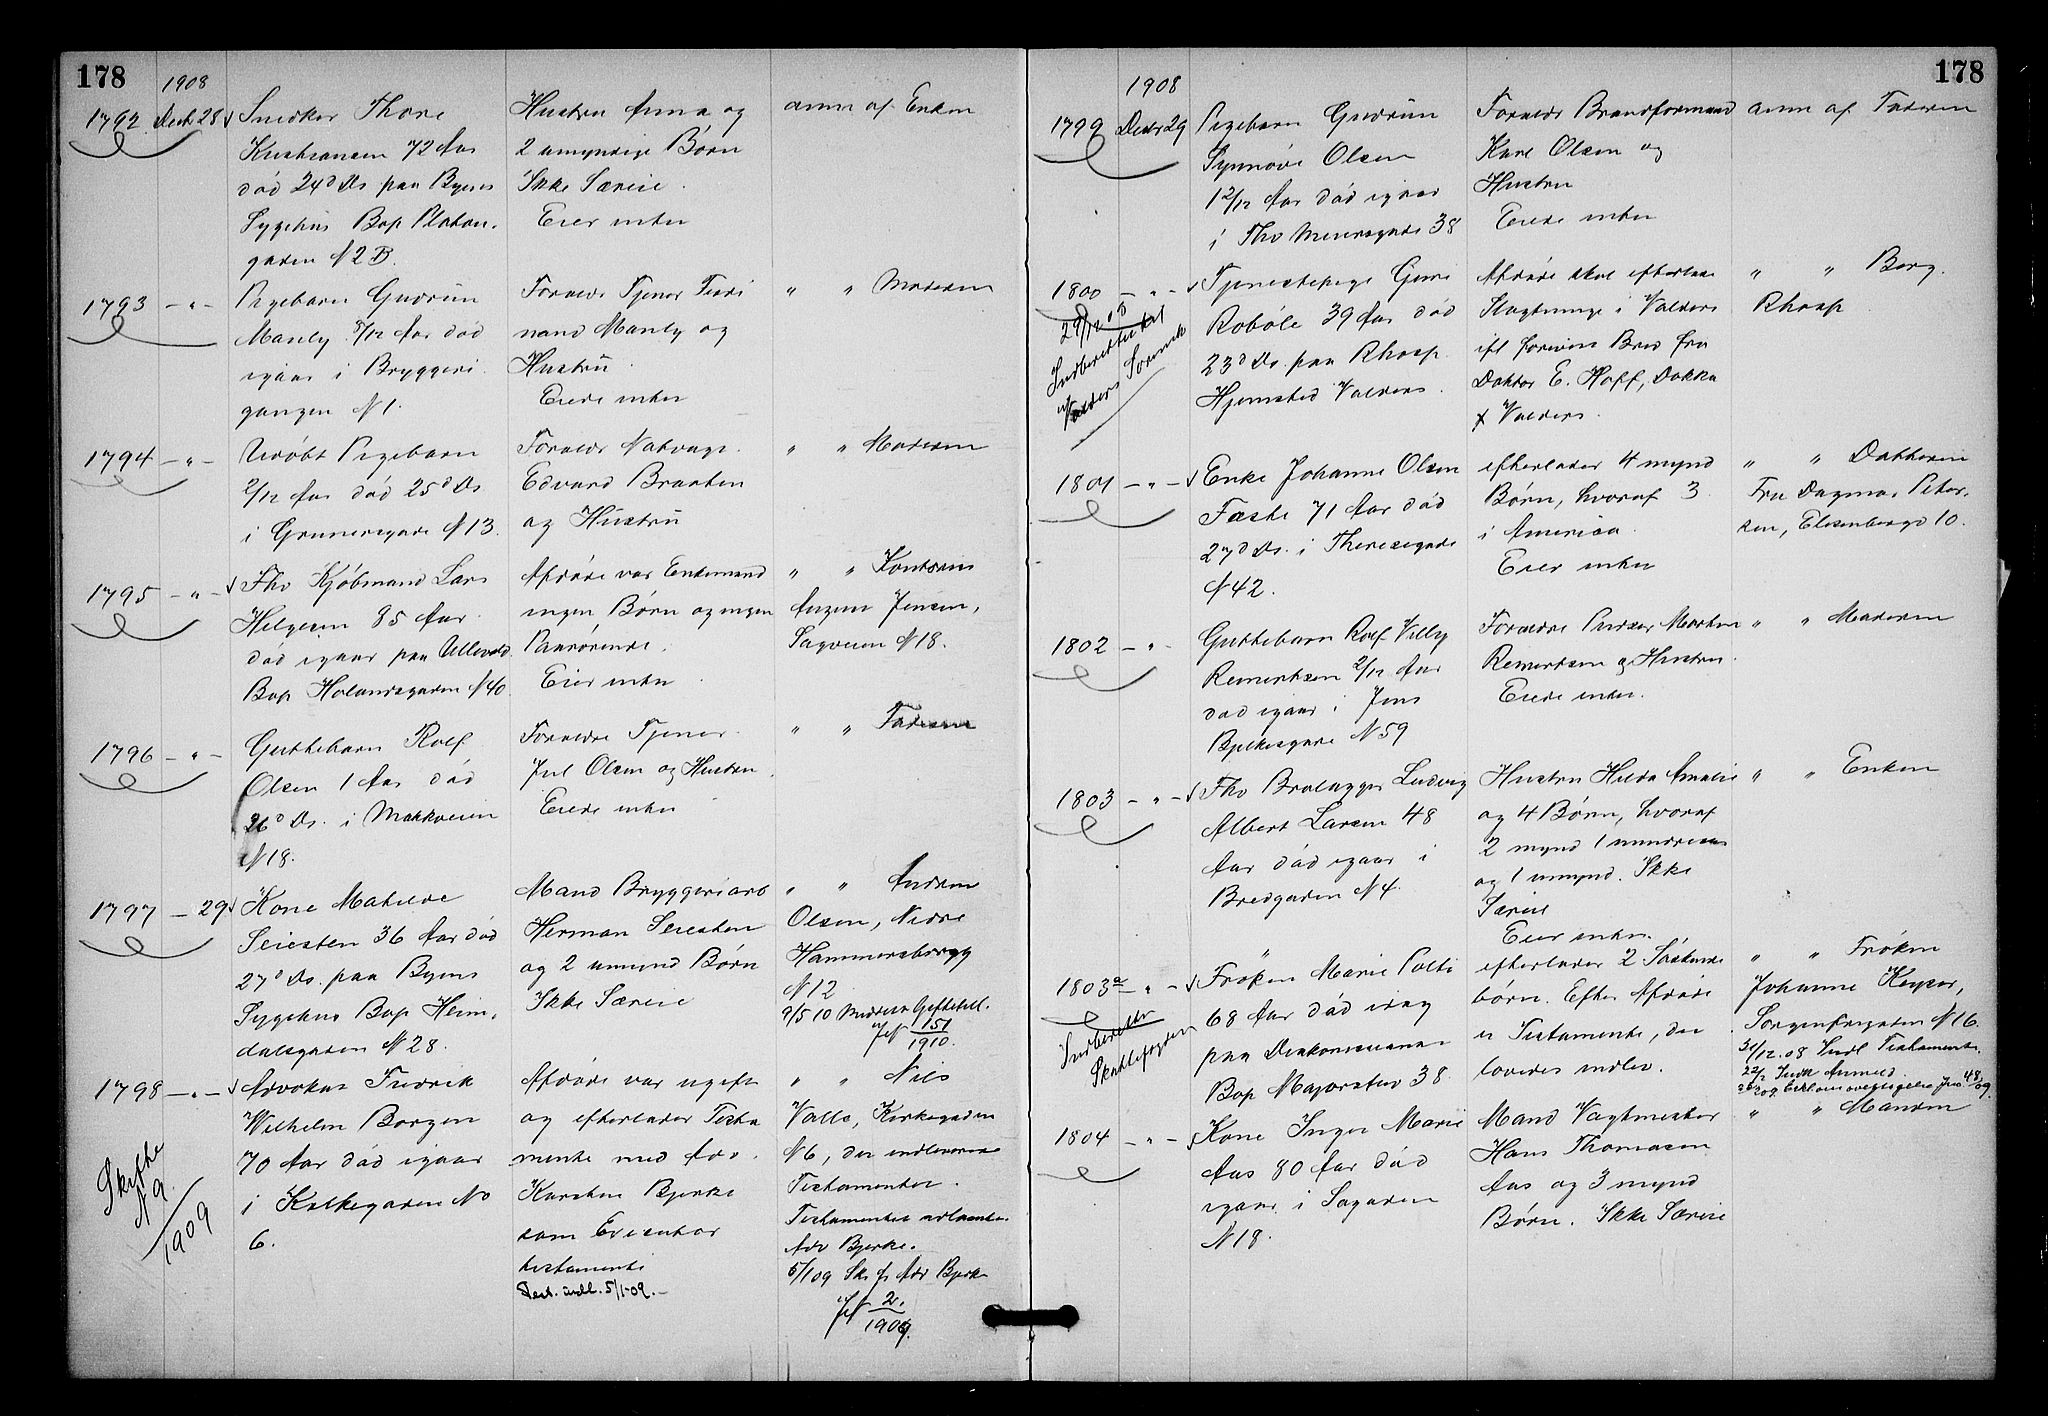 178
1908
1792 Decbr 28 Snedker Thore
Kristiansen 72 Aar
død 24d Ds paa Byens
Sygehus Bop Platou-
gaden N 2 B.
Hustru Anna og
2 umyndige Børn
Ikke Særeie.
Eier intet
anm af Enken
1793 -"- Pigebarn Gudrun
Manly 5/12 Aar død
igaar i Bryggeri
gangen N 1.
Forældr Tjener Ferdi
nand Manly og
Hustru
Eiede intet
" " Moderen
1794 -"- Udøbt Pigebarn
2/12 Aar død 25d Ds
i Grunersgade N 13.
Forældr Natvagt
Edvard Braaten
og Hustru
" " Moderen
1795 -"- Fhv Kjøbmand Lars
Helgesen 85 Aar
død igaar paa Ullevold
Bop Helandsgaden N 40
Afdøde var Enkemand
ingen Børn og ingen
Paarørende.
Eier intet
" " Kontorist
Jensen,
Sagveien N 18.
1796 -"- Guttebarn Rolf
Olsen 1 Aar død
26d Ds. i Markveien
N 18.
Forældre Tjener
Jul Olsen og Hustru
Eiede intet
" " Faderen
1797 - 29 Kone Mathilde
Seiersten 36 Aar død
27d Ds. paa Byens
Sygehus Bop Heim-
dalsgaden N 28.
Mand Bryggeriarb
Herman Seiersten
og 2 umynd Børn
Ikke Særeie
" " Andrea
Olsen, Nedre
Hammersborgg
N 12
9/5 10 Meddelt Giftetill.
Jr 151
1910.
1798 -"- Advokat Fredrik
Wilhelm Borgen
70 Aar død igaar
i Kirkegaden No
6.
Skifte
N 9
1909
Afdøde var ugift
og efterlader Testa
mente med Adv.
Karsten Bjerke
som Executor
testamenti
Test. indl. 5/1-09.-
" " Nils
Valle, Kirkegaden
N 6, der indleverede
Testamentet.
Testamentet
Adv Bjerke.
5/1 09 Sk f Adv Bjerke
Jr 2.
1909.
178
1908
1799 Decbr 29 Pigebarn Gudrun
Synnøve Olsen
1 2/12 Aar død igaar
i Thv Meiersgade 38
Forældr Brandformand
Karl Olsen og
Hustru
Eiede intet
anm af Faderen
1800 -"- Tjenestepige Guri
Robøle 39 Aar død
23d Ds. paa Rhosp.
Hjemsted Valders.
29/12 08
Indberettet til
Valders Sorensk
Afdøde skal efterlade
Slægtninge i Valders
ifl forevist Brev fra
Doktor E. Hoff, Dokka
x Valders.
" " Berg.
Rhosp
1801 -"- Enke Johanne Olsen
Faste 71 Aar død
27d Ds. i Theresegade
N 42.
efterlader 4 mynd
Børn, hvoraf 3
i America.
Eier intet
" " Datteren
Fru Dagmar Peter-
sen, Eilertsbergd 10.
1802 -"- Guttebarn Rolf Villy
Reinertsen 2/12 Aar
død igaar i Jens
Bjelkesgade N 59
Forældre Pudser Morten
Reinertsen og Hustru.
Eiede intet.
" " Moderen
1803 -"- Fhv Brolægger Ludvig
Albert Larsen 48
Aar død igaar i
Bredgaden N 4.
Hustru Hilda Amalie
og 4 Børn, hvoraf
2 mynd 1 mindreaa
og 1 umynd. Ikke
Særeie
Eier intet.
" " Enken
1803a -"- Frøken Marie Polti
68 Aar død idag
paa Diakonissehuset
Bop Majorstuv 38
Indberettet
Skattefogden
efterlader 2 Søskende
børn. Efter Afdøde
er Testamente, der
lovedes indlev.
" " Frøken
Johanne Keyser,
Sorgenfrigaden N 16.
31/12.08 Indl Testamente.
22/2 Indk Anmeld.
Jno 48/09.
1804 -"- Kone Inger Marie
Aas 80 Aar død
igaar i Sagaden
N 18.
Mand Vagtmester
Hans Thomasen
Aas og 3 mynd
Børn. Ikke Særeie
" " Manden